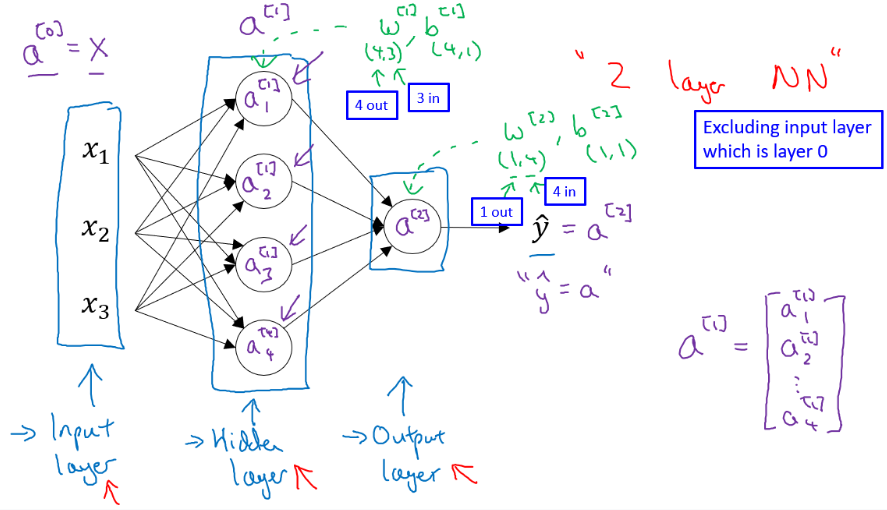 a^[0] = X
a^[1]
w^[1], b^[1]
(4,3) (4,1)
4 out
3 in
"2 layer NN"
Excluding input layer
which is layer 0
x₁
x₂
x₃
a₁^[1]
a₂^[1]
a₃^[1]
a₄^[4]
w^[2], b^[2]
(1,4) (1,1)
1 out
4 in
a^[2]
ŷ = a^[2]
"ŷ = a"
a^[1] = [
a₁^[1]
a₂^[1]
⋮
a₄^[1]
]
→ Input
layer
→ Hidden
layer
→ Output
layer